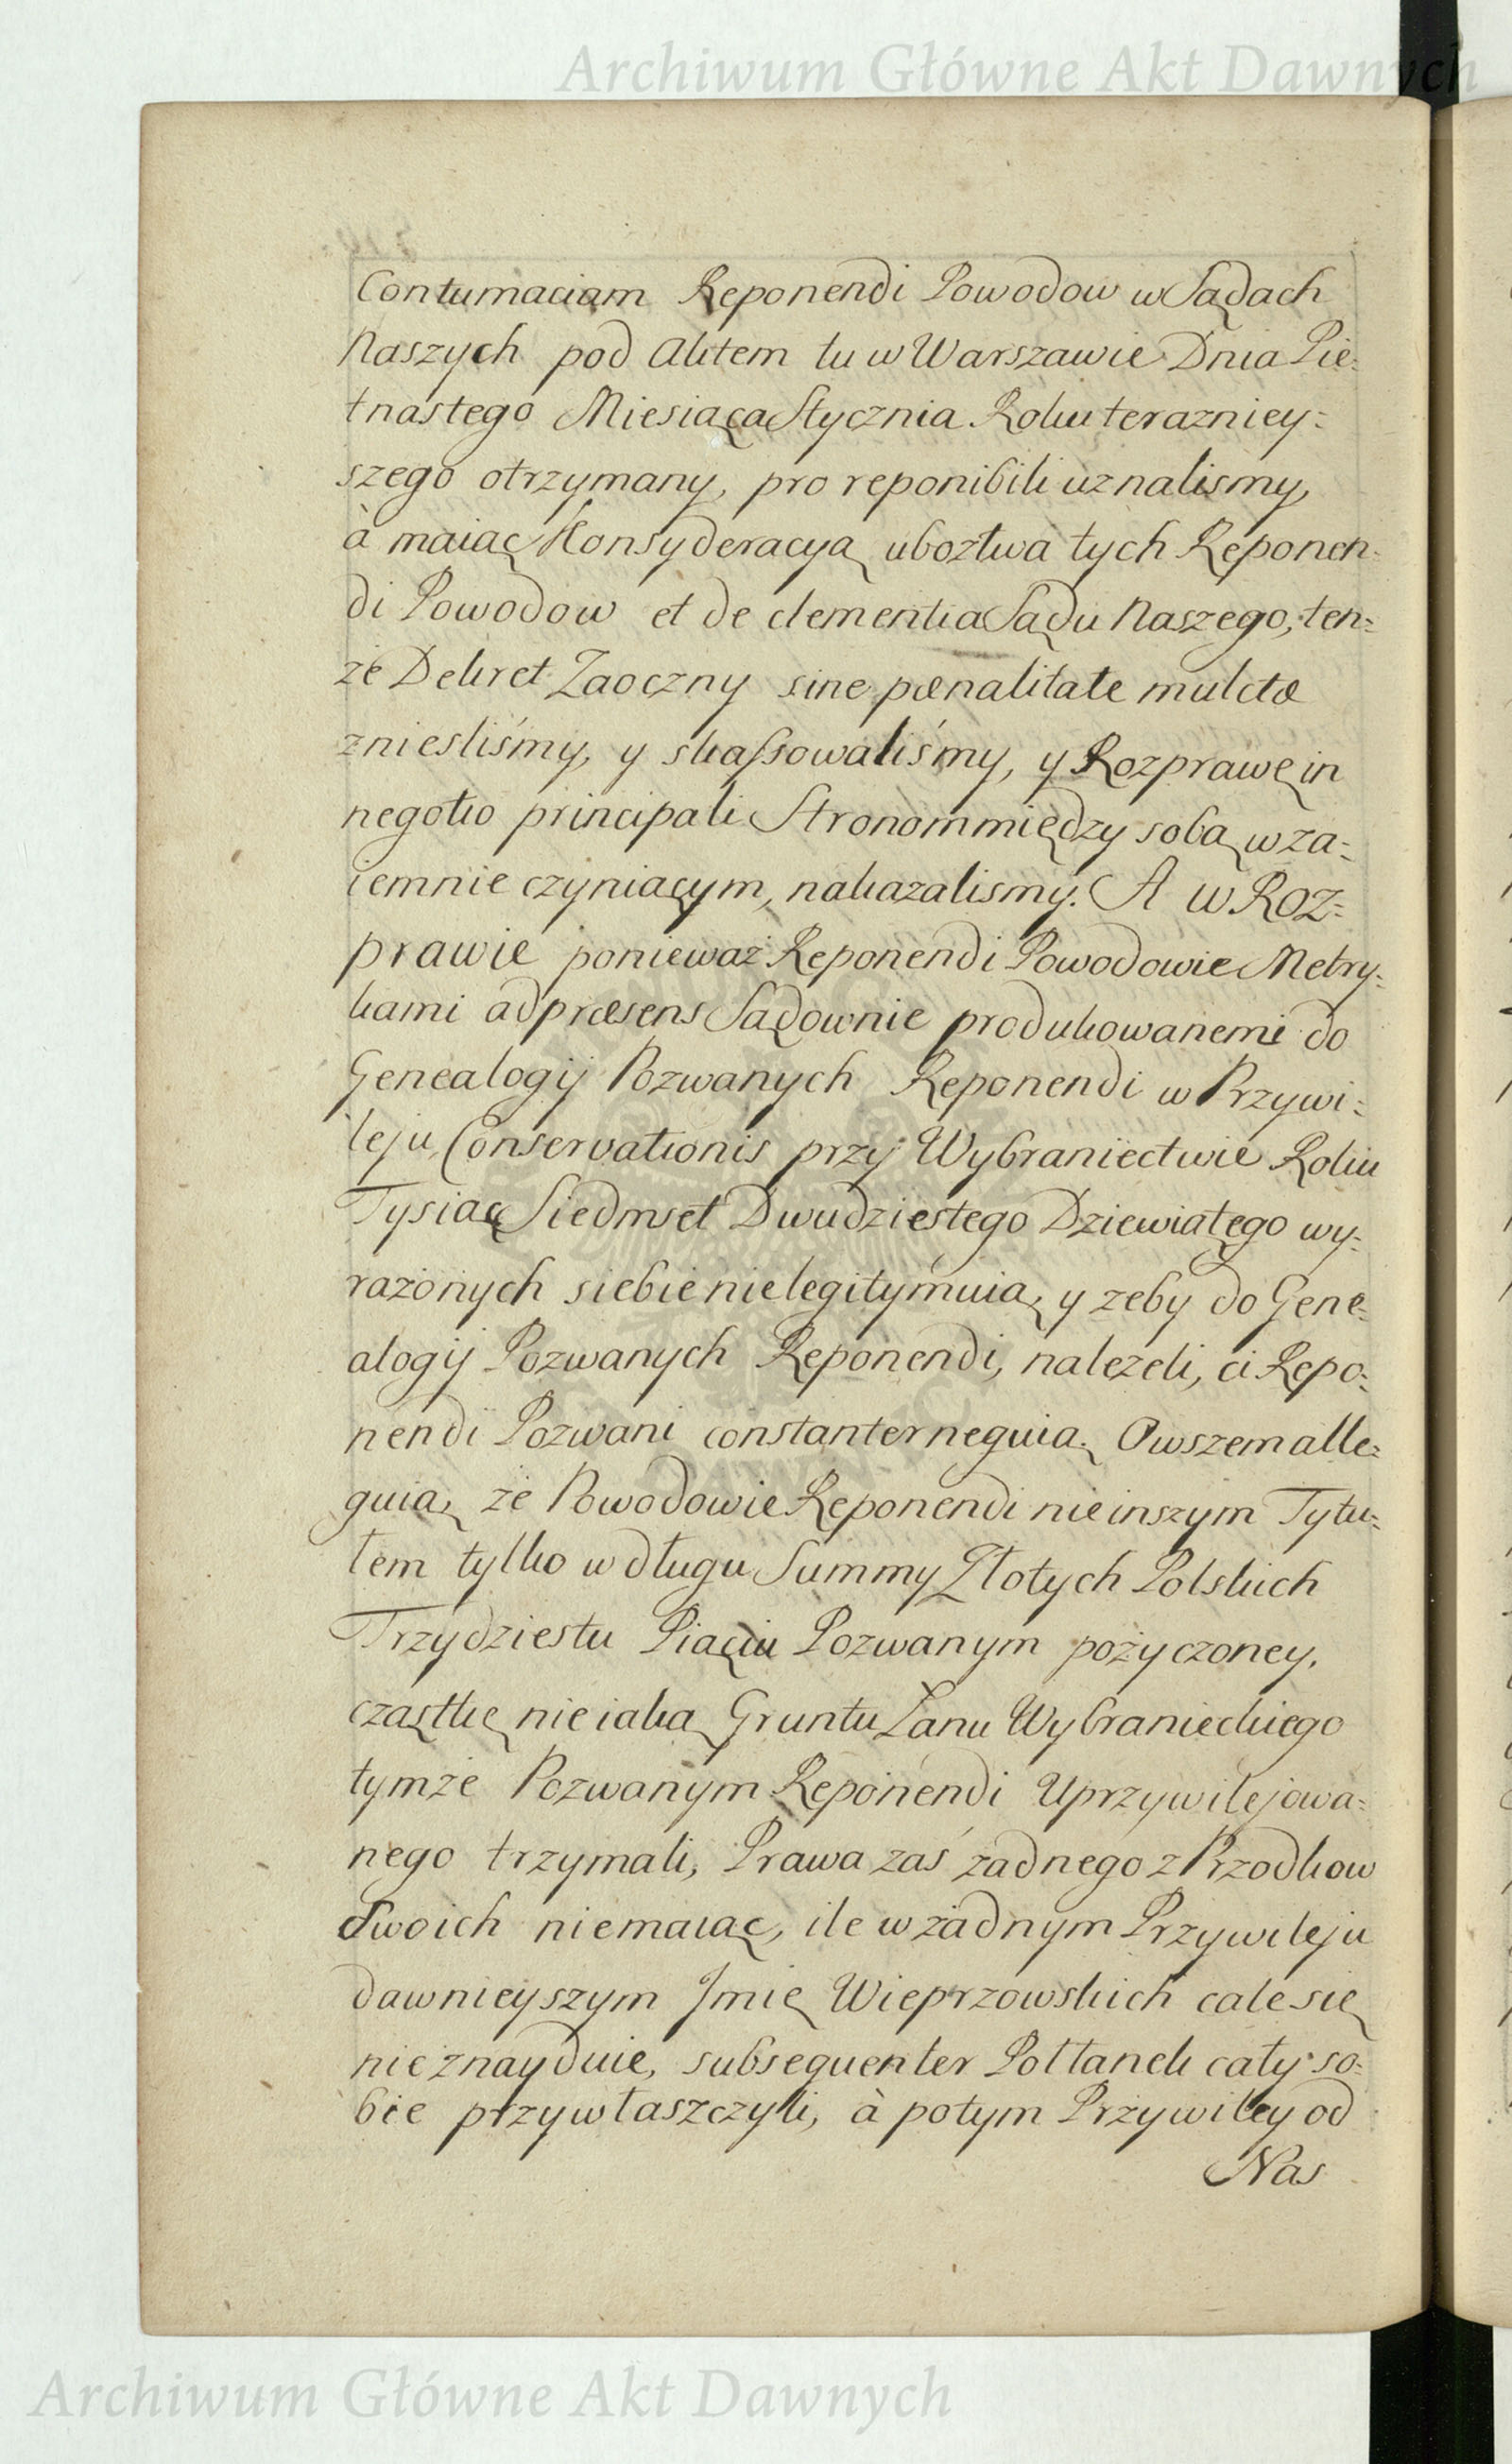 Archiwum Główne Akt Dawnych
Contumaciam Reponendi Powodow w Sądach
Naszych pod Aktem tu w Warszawie Dnia Pie=
tnastego Miesiąca Stycznia Roku terazniey=
szego otrzymany, pro reponibili uznalismy,
à maiąc Konsyderacyą uboztwa tych Reponen=
di Powodow et de clementia Sądu Naszego, ten=
że Dekret Zaoczny sine pœnalitate mulctæ
znieśliśmy, y skassowaliśmy, y Rozprawę in
negotio principali Stronom między sobą wza=
iemnie czyniącym, nakazalismy. A w Roz=
prawie ponieważ Reponendi Powodowie Metry=
kami ad præsens Sądownie produkowanemi do
Genealogij Pozwanych Reponendi w Przywi=
leju Conservationis przy Wybraniectwie Roku
Tysiąc Siedmset Dwudziestego Dziewiątego wy=
rażonych siebie nie legitymuią, y zeby do Gene=
alogij Pozwanych Reponendi, nalezeli, ci Repo=
nendi Pozwani constanter neguią. Owszem alle=
guią, że Powodowie Reponendi nie inszym Tytu=
łem tylko w długu Summy Złotych Polskich
Trzydziestu Piąciu Pozwanym pożyczoney,
cząstkę nieiaką Gruntu Łanu Wybranieckiego
tymże Pozwanym Reponendi Uprzywilejowa=
nego trzymali, Prawa zaś żadnego z Przodkow
Swoich niemaiąc, ile w żadnym Przywileju
dawnieyszym Imię Wieprzowskich cale się
nieznayduie, subsequenter Połłanek cały so=
bie przywłaszczyli, à potym Przywiley od
Nas
Archiwum Główne Akt Dawnych